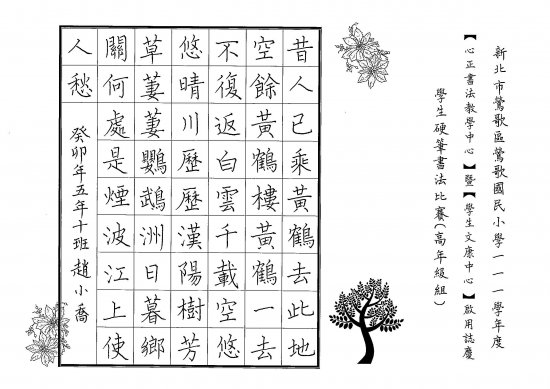 新北市鶯歌區鶯歌國民小學一一一學年度
【心正書法教學中心】暨【學生文康中心】啟用誌慶
學生硬筆書法比賽(高年級組)
昔人已乘黃鶴去此地
空餘黃鶴樓黃鶴一去
不復返白雲千載空悠
悠晴川歷歷漢陽樹芳
草萋萋鸚鵡洲日暮鄉
關何處是煙波江上使
人愁 癸卯年五年十班趙小喬